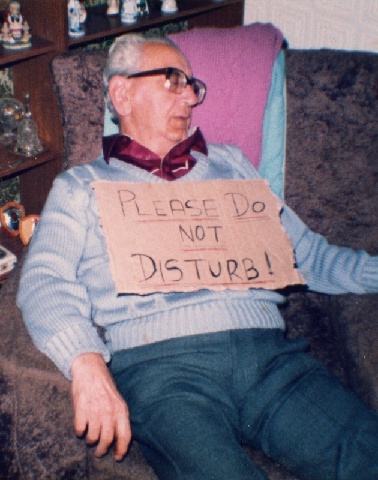 PLEASE DO
NOT
DISTURB!